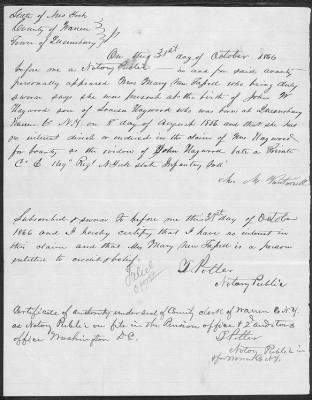 State of New York
County of Warren } SS
Town of Queensbury
On this 31st day of October 1866
before me a Notary Public in and for said county
personally appeared Mrs Mary Mew who being duly
sworn says she was present at the birth of John W
Haywood son of Louisa Haywood who was born at Queensbury
Warren Co N.Y. on 8th day of August and that she has
no interest direct or indirect in the claim of Mrs Haywood
for bounty as the widow of John Haywood late a Private
Co E Regt N. York State Infantry Vols
Mrs M
Subscribed & sworn to before me this 31st day of October
1866 and I hereby certify that I have no interest in
this claim and that Mrs Mary Mew is a person
entitled to credit & belief.
D. Potter
Notary Public
Certificate of authority under seal of County clerk of Warren Co N.Y.
as Notary Public on file in the Pension office & 2d auditors
office Washington D.C.
D Potter
Notary Public in
& for Warren Co N.Y.